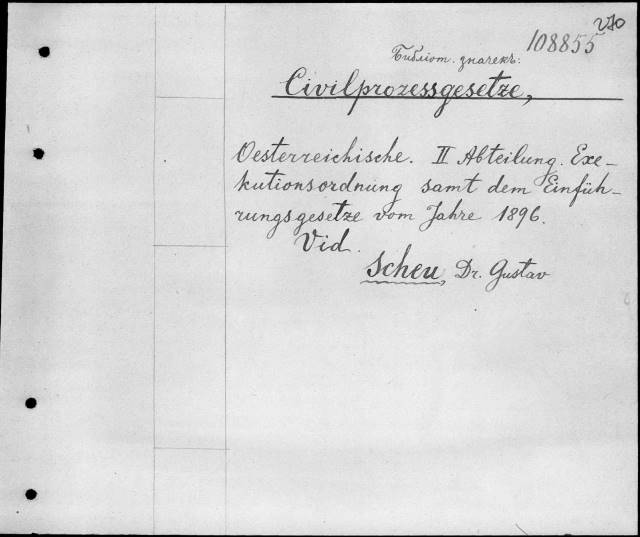 270
108855
Библіот. значекъ:
Civilprozessgesetze,
Oesterreichische. II Abteilung. Exe-
kutionsordnung samt dem Einfüh-
rungsgesetze vom Jahre 1896.
Vid.
Scheu, Dr. Gustav